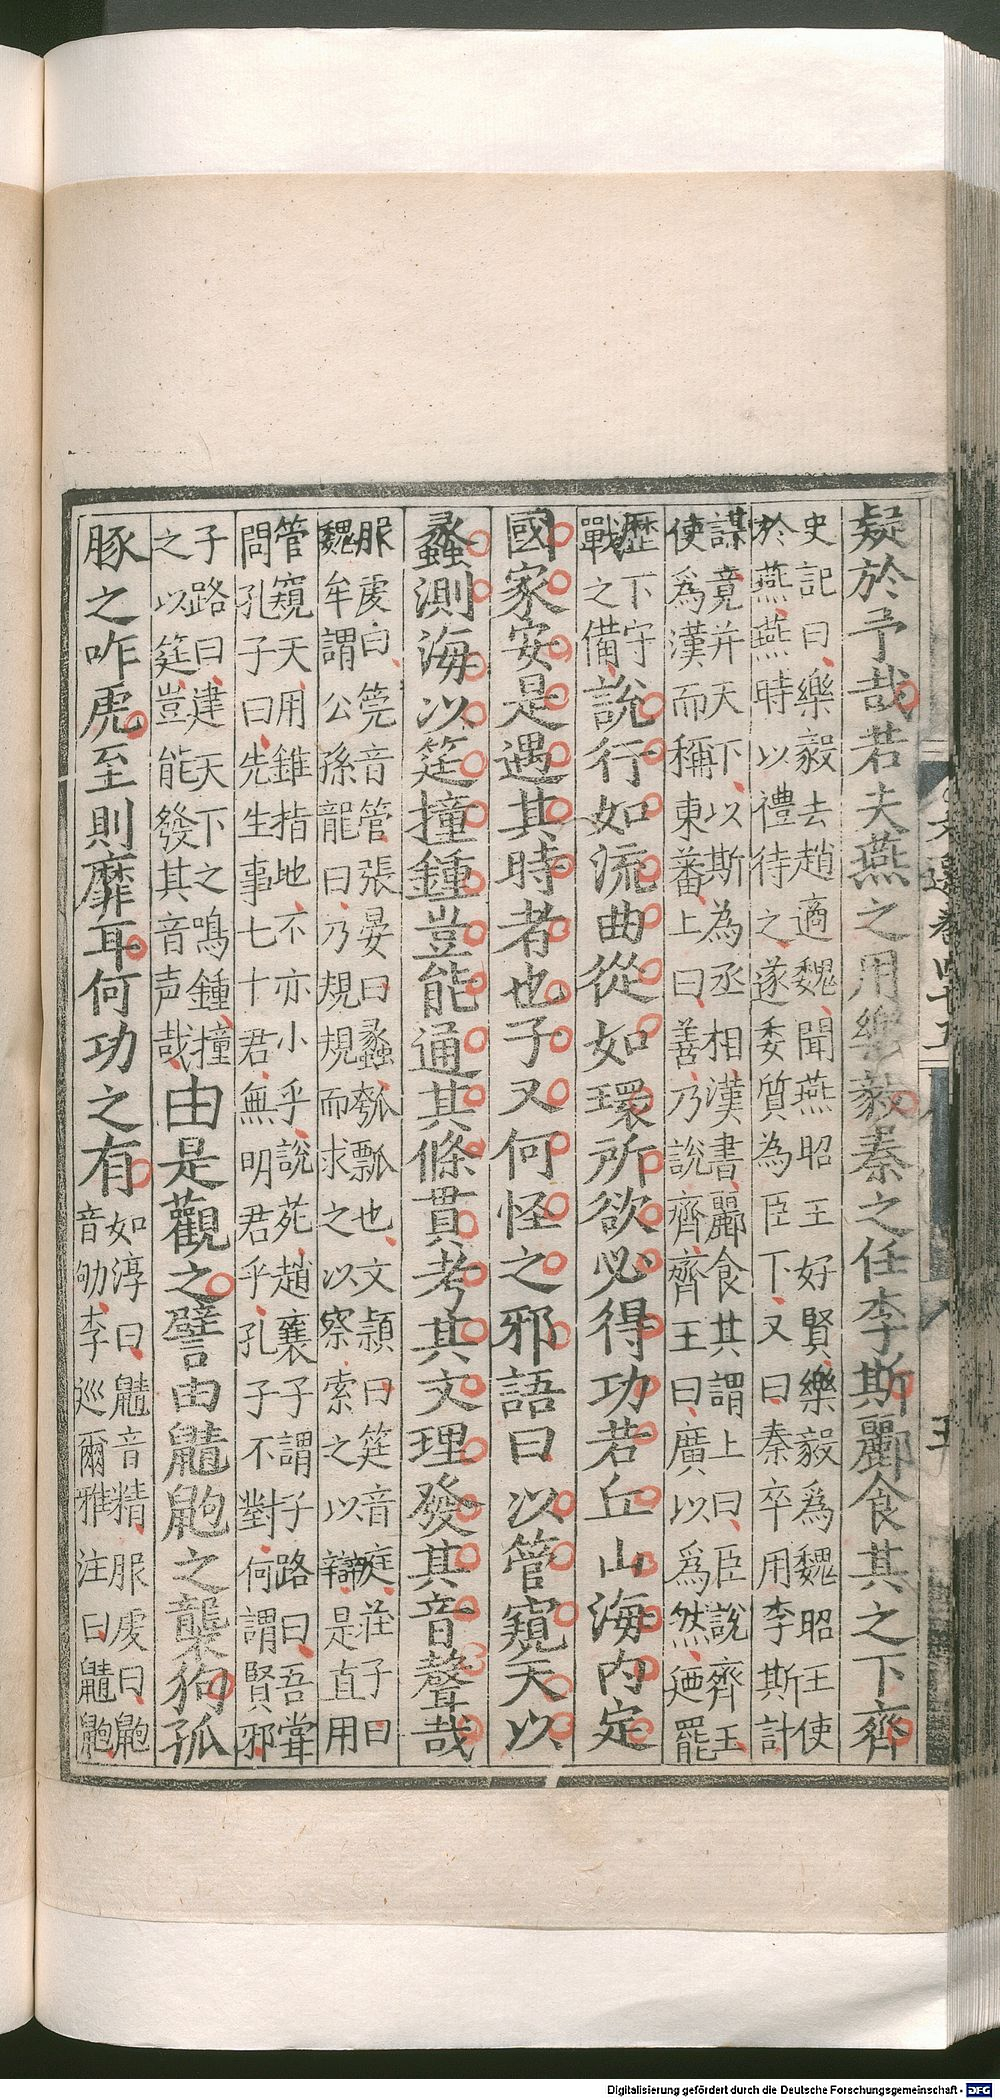 疑於予哉若夫燕之用樂毅秦之任李斯酈食其之下齊
史記曰樂毅去趙適魏聞燕昭王好賢樂毅爲魏昭王使
於燕燕時以禮待之遂委質為臣下又曰秦卒用李斯計
謀竟并天下以斯為丞相漢書酈食其謂上曰臣說齊王
使為漢而稱東蕃上曰善乃說齊齊王曰廣以爲然迺罷
歷下守
戰之備
說行如流曲從如環所欲必得功若丘山海內定
國家安是遇其時者也子又何怪之邪語曰以管窺天以
蠡測海以筳撞鍾豈能通其條貫考其文理發其音聲哉
服虔曰筦音管張晏曰蠡瓠瓢也文穎曰筳音庭莊子曰
魏牟謂公孫龍曰乃規規而求之以察索之以辯是直用
管窺天用錐指地不亦小乎說苑趙襄子謂子路曰吾嘗
問孔子曰先生事七十君無明君乎孔子不對何謂賢邪
子路曰建天下之鳴鍾撞
之以筳豈能發其音声哉
由是觀之譬由鼱鼩之襲狗孤
豚之咋虎至則靡耳何功之有
如淳曰鼱音精服虔曰鼩
音劬李巡爾雅注曰鼱鼩
文選卷四十五
五
Digitalisierung gefördert durch die Deutsche Forschungsgemeinschaft - DFG